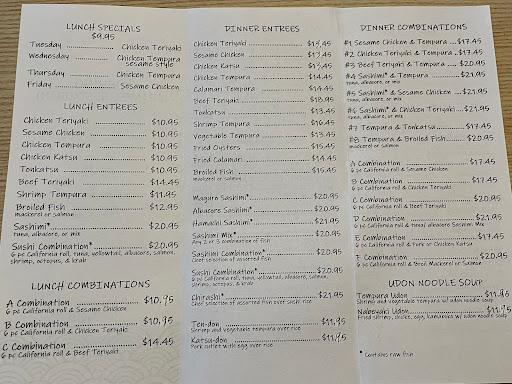 LUNCH SPECIALS
$9.95
Tuesday ...... Chicken Teriyaki
Wednesday ...... Chicken Tempura
sesame style
Thursday ...... Chicken Tempura
Friday ...... Sesame Chicken
LUNCH ENTREES
Chicken Teriyaki ...... $10.95
Sesame Chicken ...... $10.95
Chicken Tempura ...... $10.95
Chicken Katsu ...... $10.95
Tonkatsu ...... $10.95
Beef Teriyaki ...... $14.45
Shrimp Tempura ...... $11.95
Broiled Fish ...... $12.95
mackerel or salmon
Sashimi* ...... $20.95
tuna, albacore, or mix
Sushi Combination* ...... $20.95
6 pc California roll, tuna, yellowtail, salmon,
shrimp, octopus, & krab
LUNCH COMBINATIONS
A Combination ...... $10.95
6 pc California roll & Sesame Chicken
B Combination ...... $10.95
6 pc California roll & Chicken Teriyaki
C Combination ...... $14.45
6 pc California roll & Beef Teriyaki
DINNER ENTREES
Chicken Teriyaki ......
Sesame Chicken ......
Chicken Katsu ......
Chicken Tempura ...... $14.45
Calamari Tempura ...... $14.45
Beef Teriyaki ...... $18.95
Tonkatsu ...... $13.45
Shrimp Tempura ...... $16.45
Vegetable Tempura ...... $13.45
Fried Oysters ...... $15.45
Fried Calamari ...... $14.45
Broiled Fish ...... $15.45
mackerel or salmon
Maguro Sashimi* ...... $20.95
Albacore Sashimi* ...... $20.95
Hamachi Sashimi* ...... $21.95
Sashimi Mix* ...... $20.95
Any 2 or 3 combination of fish
Sashimi Combination* ...... $20.95
Chef selection of assorted fish
Sushi Combination* ...... $20.95
6 pc California roll, tuna, yellowtail, albacore, salmon,
shrimp, octopus, & krab
Chirashi* ...... $21.95
Chef selection of assorted fish over sushi rice
Ten-don ...... $11.95
Shrimp and vegetable tempura over rice
Katsu-don ...... $11.95
Pork cutlet with egg over rice
DINNER COMBINATIONS
#1 Sesame Chicken & Tempura ...... $17.45
#2 Chicken Teriyaki & Tempura ...... $17.45
#3 Beef Teriyaki & Tempura ...... $20.95
#4 Sashimi* & Tempura ...... $21.95
tuna, albacore, or mix
#5 Sashimi* & Sesame Chicken ...... $21.95
tuna, albacore, or mix
#6 Sashimi* & Chicken Teriyaki ...... $21.45
tuna, albacore, or mix
#7 Tempura & Tonkatsu ...... $17.45
#8 Tempura & Broiled Fish ...... $20.95
mackerel or salmon
A Combination ...... $17.45
6 pc California roll & Sesame Chicken
B Combination ...... $17.45
6 pc California roll & Chicken Teriyaki
C Combination ...... $20.95
6 pc California roll & Beef Teriyaki
D Combination ...... $21.95
6 pc California roll & tuna/ albacore/ Sashimi Mix
E Combination ...... $17.45
6 pc California roll & Pork or Chicken Katsu
F Combination ...... $20.95
6 pc California roll & Broil Mackerel or Salmon
UDON NOODLE SOUP
Tempura Udon ...... $11.95
Shrimp and vegetable tempura w/ udon noodle soup
Nabeyaki Udon ...... $11.75
Fried shrimp, chicken, egg, kamaboko w/ udon noodle soup
* Contains raw fish